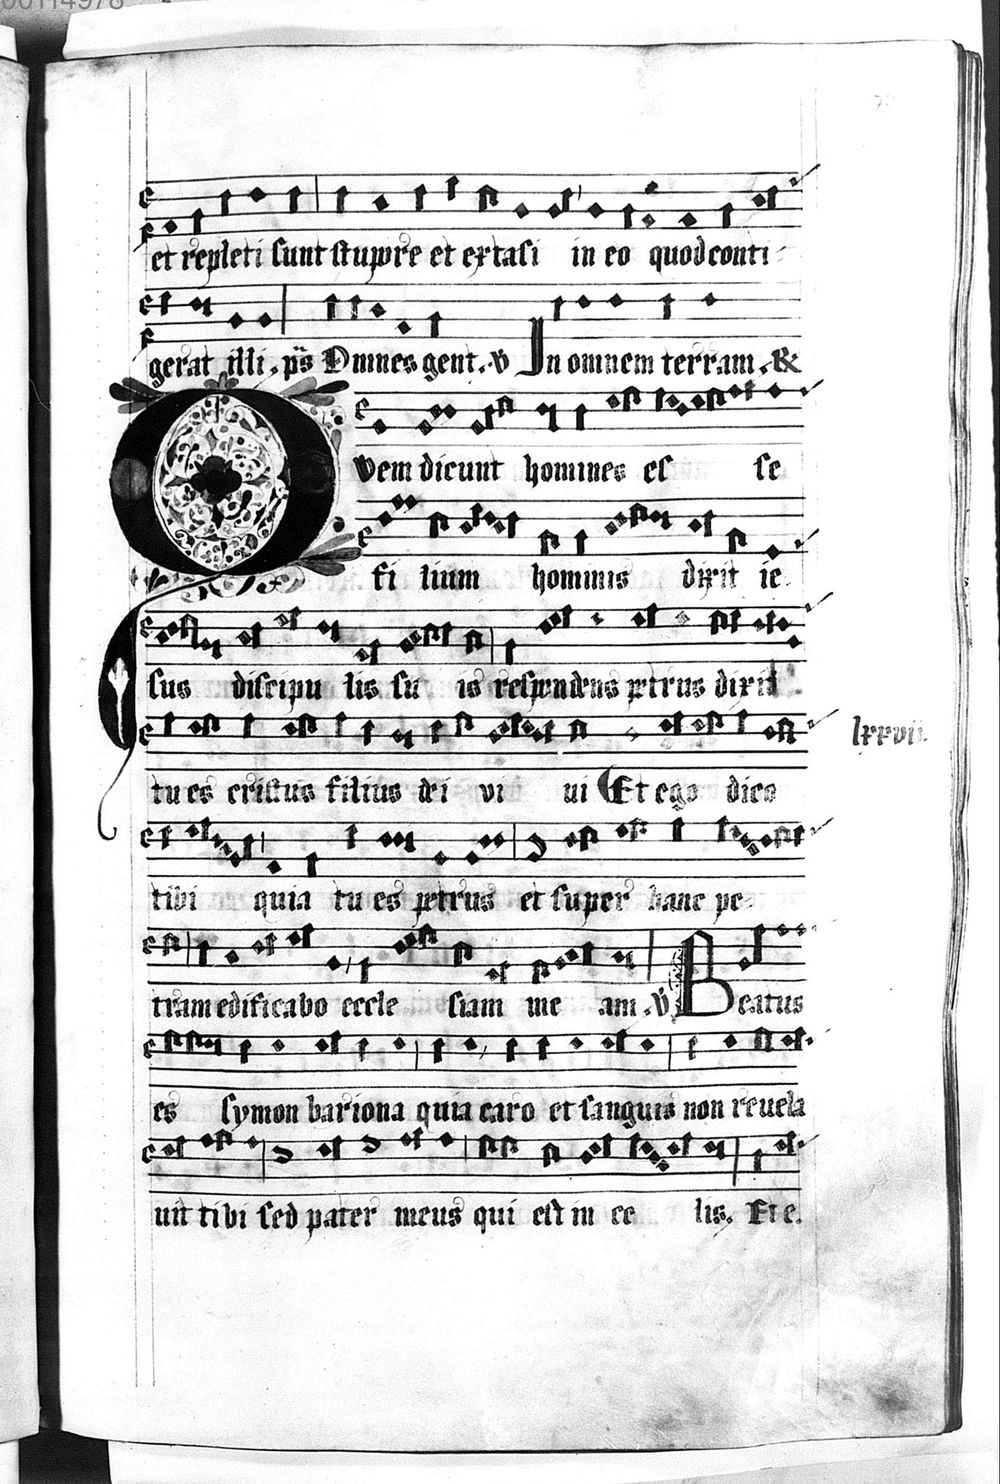 00114978
et repleti sunt stupore et extasi in eo quod conti
gerat illi. ps Omnes gent. v In omnem terram. R
Qvem dicunt homines es se
fi lium hominis dixit ie
sus discipu lis su is respondens petrus dixit
tu es cristus filius dei vi ui Et ego dico
lxxvii.
tibi quia tu es petrus et super hanc pe
tram edificabo eccle siam me am. v Beatus
es symon bariona quia caro et sanguis non reuela
uit tibi sed pater meus qui est in ce lis. Et e.